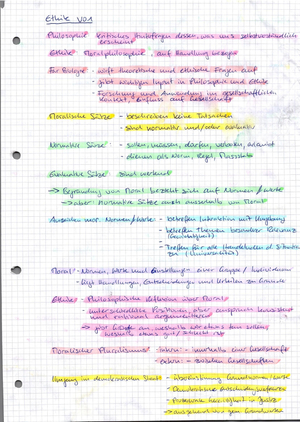 Ethik V01
Philosophie: kritisches Hinterfragen dessen, was uns selbstverständlich
erscheint
Ethik: Moralphilosophie - auf Handlung bezogen
Für Biologie: - wirft theoretische und ethische Fragen auf
- gibt wichtigen Input in Philosophie und Ethik
- Forschung und Anwendung im gesellschaftlichen
Kontext, Einfluss auf Gesellschaft
Moralische Sätze: - beschreiben keine Tatsachen
- sind normativ und/oder evaluativ
Normative Sätze: - sollen, müssen, dürfen, verboten, erlaubt
- dienen als Norm, Regel,
Evaluative Sätze: sind wertend
→ Begründung von Moral bezieht sich auf Normen/Werte
→ aber: normative Sätze auch ausserhalb von Moral
mor. Normen/Werte: - betreffen Interaktion mit Umgebung
- betreffen Themen besonderer Relevanz
(Wichtigkeit)
- Treffen für alle Handelnden d. Situation
zu (Universalität)
Moral: Normen, Werte und einer Gruppe / Individuum
- liegt Handlungen, Entscheidungen und Urteilen zu Grunde
Ethik: - Philosophische Reflexion über Moral
- unterschiedliche Positionen, aber anspruch konsistent
und rational argumentieren
→ gibt Gründe an, weshalb wir etwas tun sollen,
weshalb etwas gut/schlecht ist
Moralischer Pluralismus: intern: - innerhalb einer Gesellschaft
extern: - zwischen Gesellschaften
Umgang im demokratischen Staat: -
- Demokratische Entscheidungsverfahren
-
→